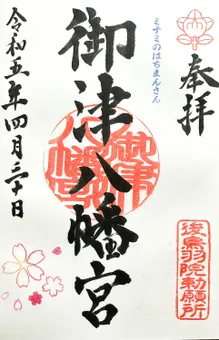 奉拝
ミナミのはちまんさん
御津八幡宮
令和五年四月三十日
後鳥羽院勅願所
御津八幡宮